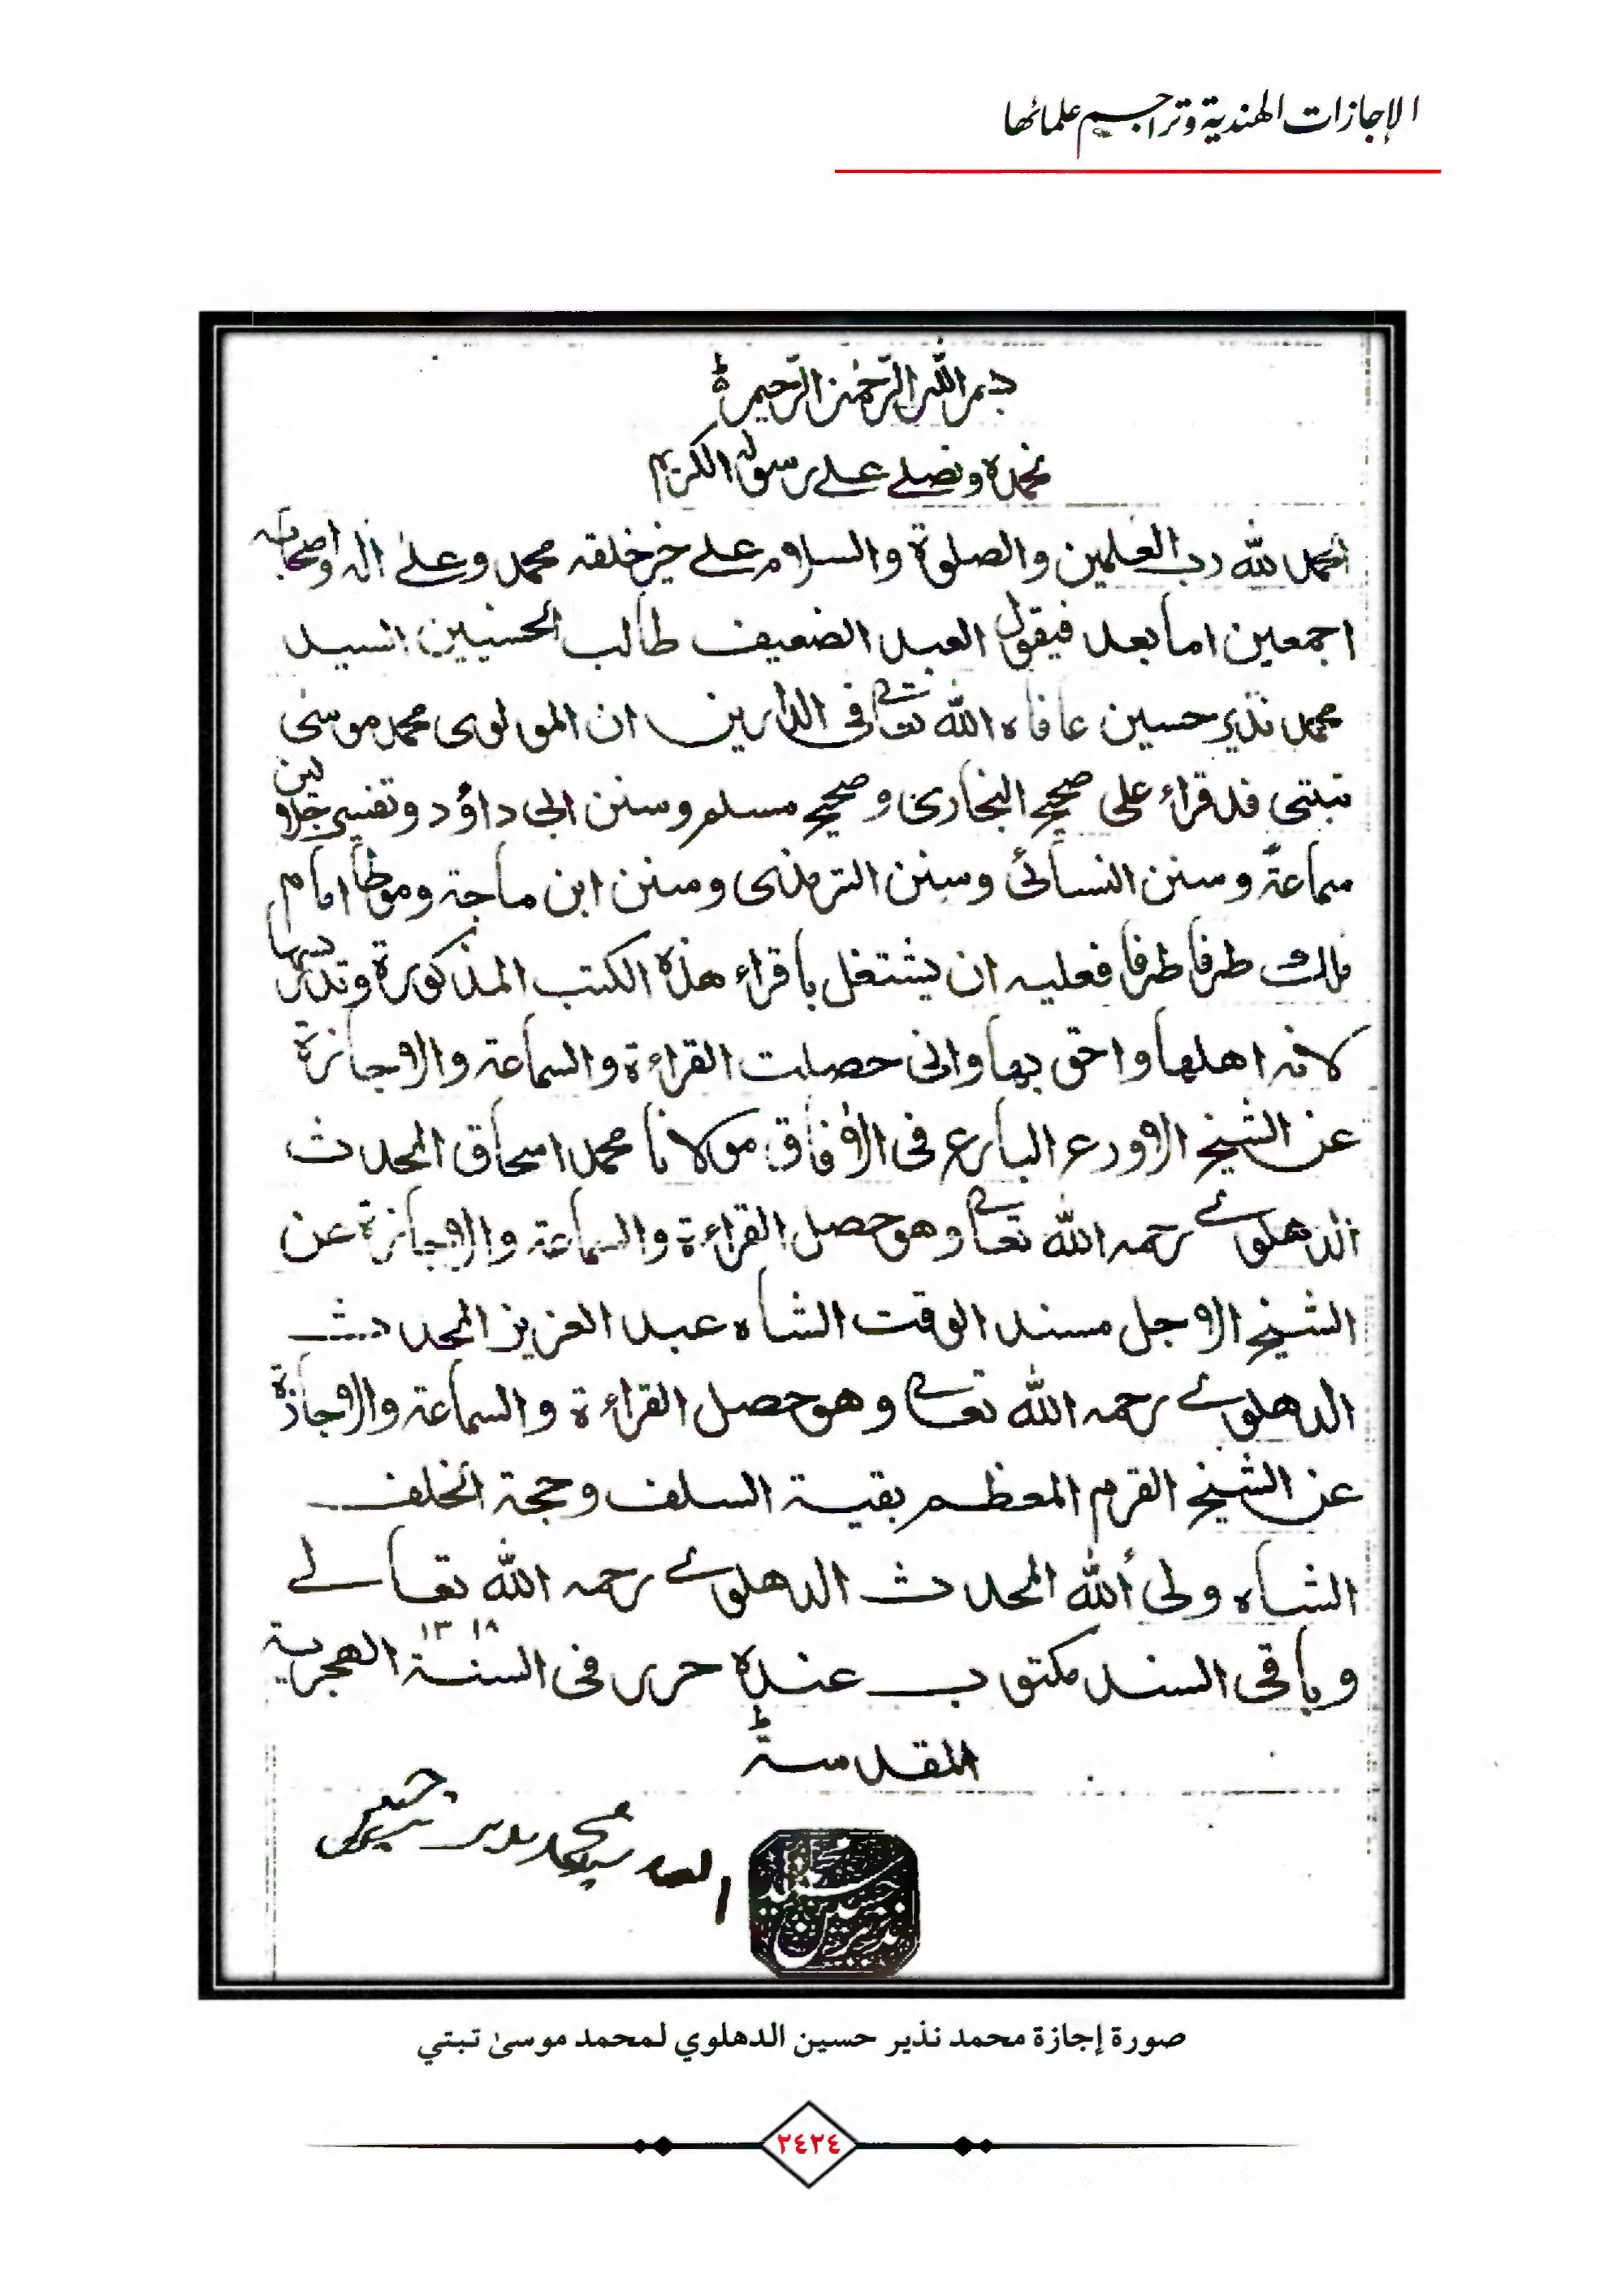 الإجازات الهندية وتراجيم علمائها
بسم الله الرحمن الرحيم ط
نحمده ونصلے علے رسوله الكريم
الحمد لله رب العلمين والصلوة والسلام علے خير خلقه محمد وعلےٰ اله واصحابه
اجمعين اما بعد فيقول العبد الضعيف طالب الحسنيين السيد
محمد نذير حسين عافاه الله تعالے فى الدارين ان المولوى محمد موسىٰ
تبتى قد قراء على صحيح البخارى وصحيح مسلم وسنن ابى داؤد وتفسير جلالين
سماعة وسنن النسائى وسنن الترمذى وسنن ابن ماجة وموطا امام
مالك طرفا طرفا فعليه ان يشتغل باقراء هذه الكتب المذكورة وتدريسها
لانه اهلها واحق بها وانى حصلت القراءة والسماعة والاجازة
عن الشيخ الاورع البارع فى الافاق مولانا محمد اسحاق المحدث
الدهلوے رحمه الله تعالے وهو حصل القراءة والسماعة والاجازة عن
الشيخ الاجل مسند الوقت الشاه عبد العزيز المحدث
الدهلوے رحمه الله تعالے وهو حصل القراءة والسماعة والاجازة
عن الشيخ القرم المعظم بقية السلف وحجة الخلف
الشاه ولى الله المحدث الدهلوے رحمه الله تعالے
وباقى السند مكتوب عنده حرر فى السنة ١٣١٨ الهجرية
المقدسة ط
العبد سيد محمد نذير حسين
صورة إجازة محمد نذير حسين الدهلوي لمحمد موسىٰ تبتي
٢٤٢٤